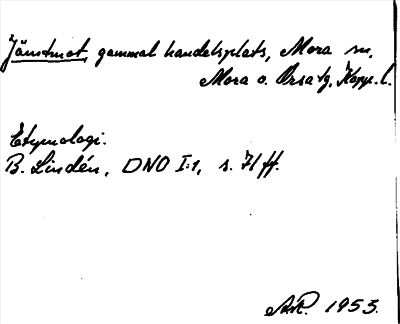 Jämtmot, gammal handelsplats, Mora sn,
Mora o. Orsa tg, Kopp. l.
Etymologi.
B. Lindén, DNO I:1, s. 71 ff.
1953.